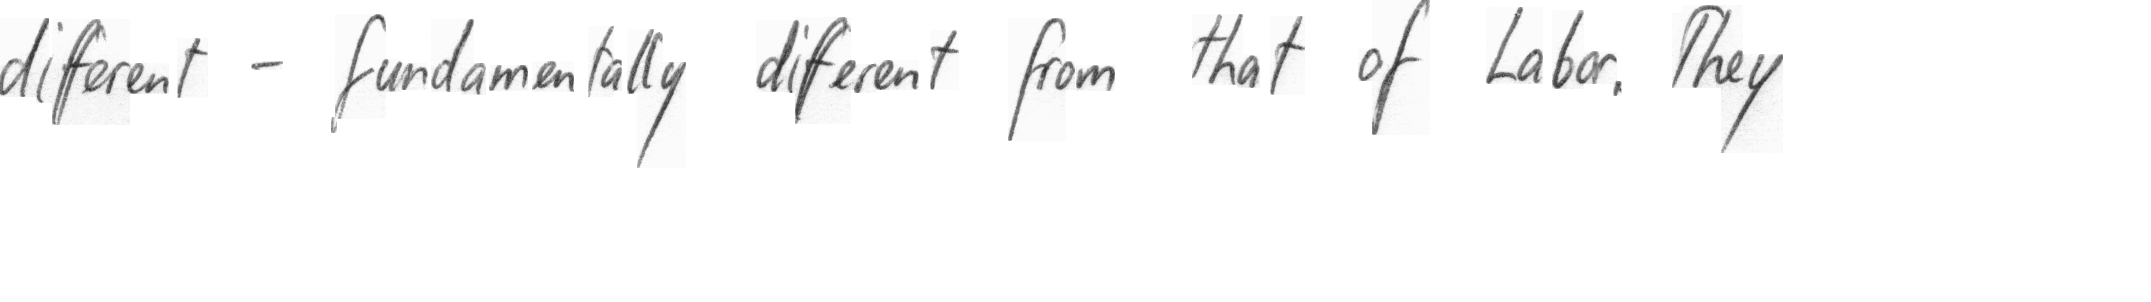 different - fundamentally different from that of Labor. They